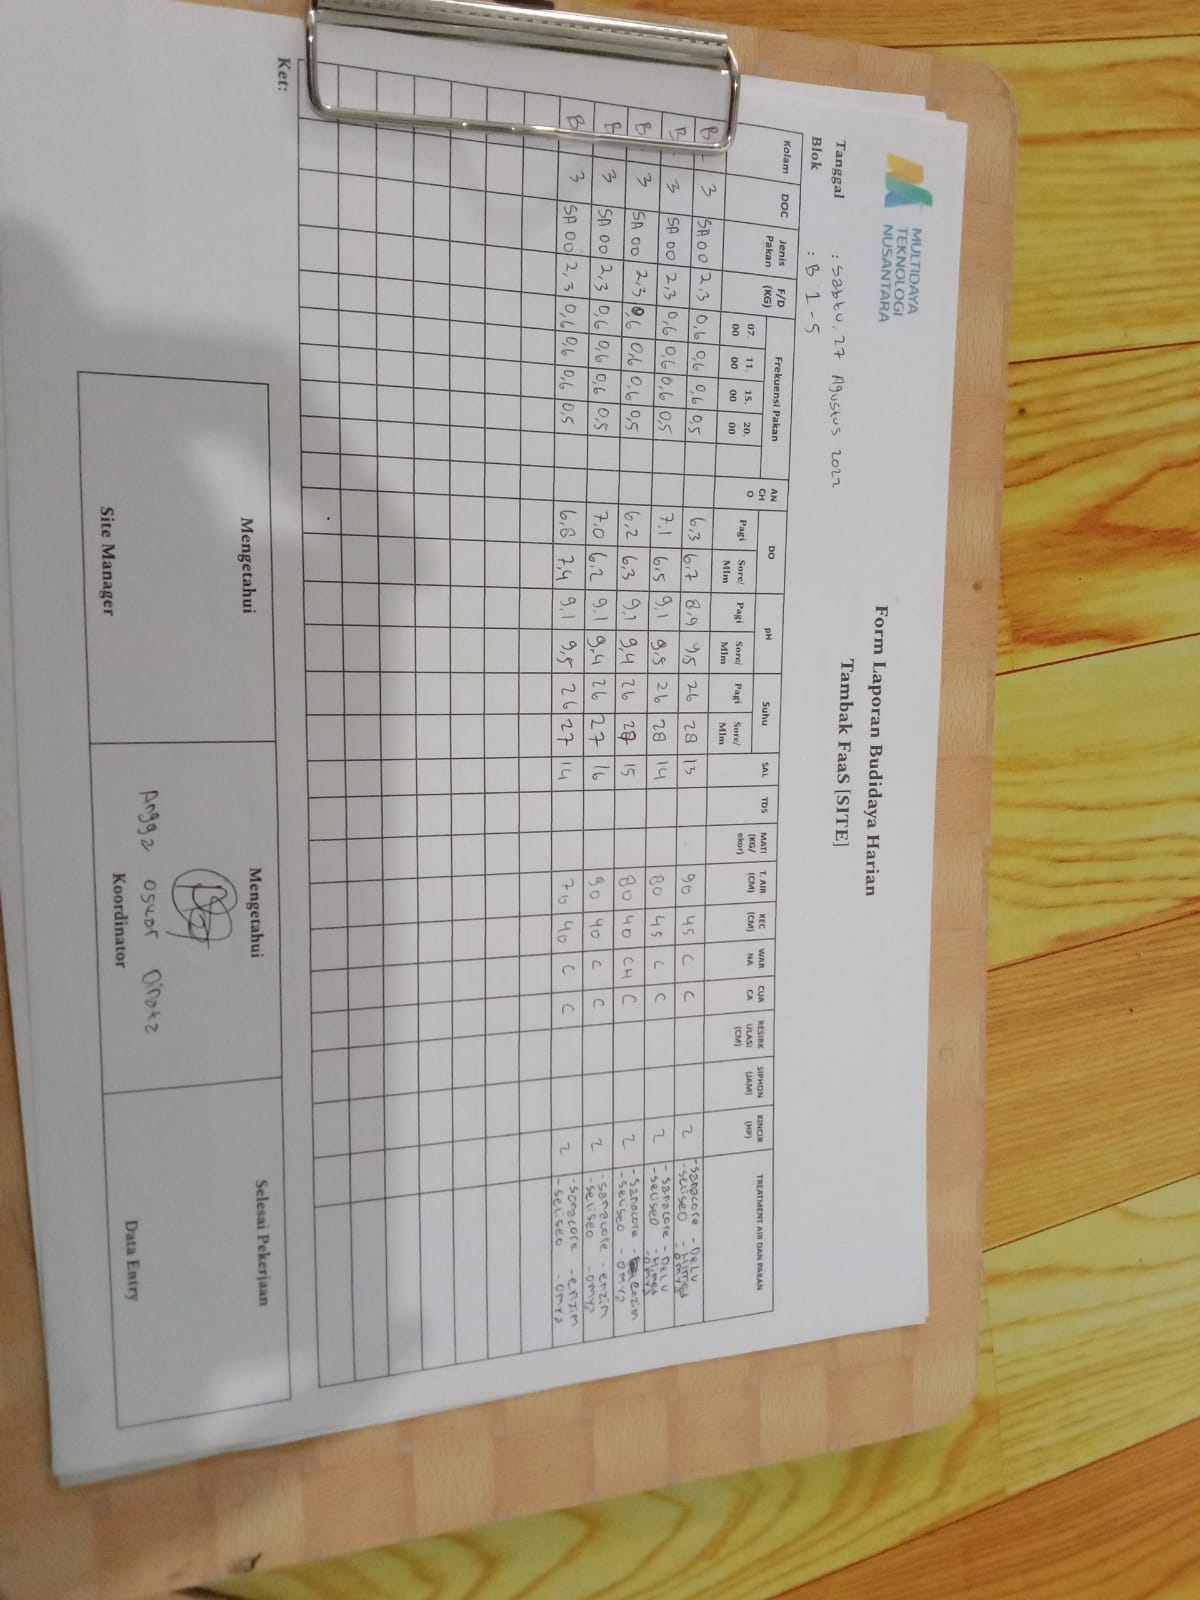 MULTIDAYA
TEKNOLOGI
NUSANTARA
Form Laporan Budidaya Harian
Tambak FaaS [SITE]
Tanggal : Sabtu, 27 Agustus 2022
Blok : B 1 - 5
Kolam DOC Jenis Pakan F/D (KG) Frekuensi Pakan 07.00 11.00 15.00 20.00 ANCHO DO Pagi Sore/Mlm pH Pagi Sore/Mlm Suhu Pagi Sore/Mlm SAL TDS MATI (KG/ekor) T. AIR (CM) KEC (CM) WARNA CUACA RESIRKULASI (CM) SIPHON (JAM) KINCIR (HP) TREATMENT AIR DAN PAKAN
B 3 SA 00 2,3 0,6 0,6 0,6 0,5 6,3 6,7 8,9 9,5 26 28 13 90 45 C C 2 - sanacore - DELV
- seliseo - Himed
- omya
B 3 SA 00 2,3 0,6 0,6 0,6 0,5 7,1 6,5 9,1 9,5 26 28 14 80 45 C C 2 - sanacore - DELV
- seliseo - Himed
- omya
B 3 SA 00 2,3 0,6 0,6 0,6 0,5 6,2 6,3 9,1 9,4 26 15 80 40 CH C 2 - sanacore - enzim
- seliseo - omya
B 3 SA 00 2,3 0,6 0,6 0,6 0,5 7,0 6,2 9,1 9,4 26 27 16 90 40 C C 2 - sanacore - enzim
- seliseo - omya
B 3 SA 00 2,3 0,6 0,6 0,6 0,5 6,8 7,4 9,1 9,5 26 27 14 70 40 C C 2 - sanacore - enzim
- seliseo - omya
Ket:
Mengetahui Mengetahui Selesai Pekerjaan
Angga
Site Manager Koordinator Data Entry